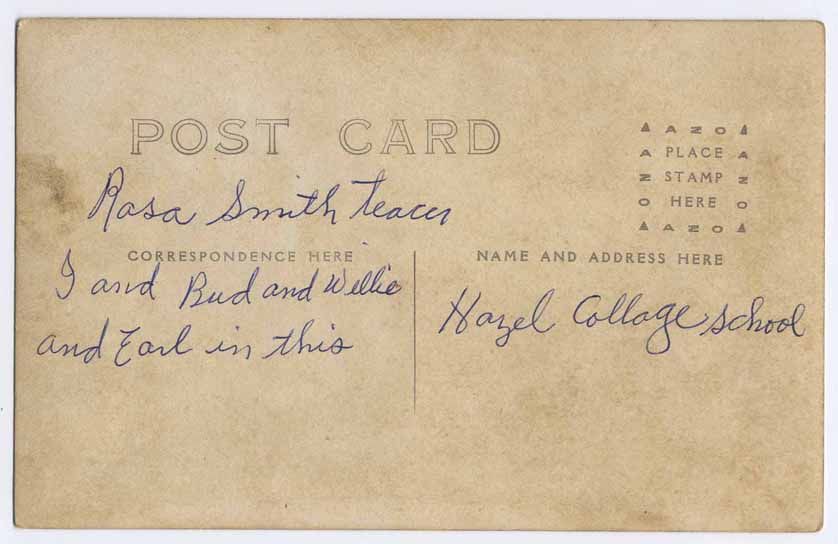 POST CARD
▲ AZO ▲
A PLACE A
Z STAMP Z
O HERE O
▲ AZO ▲
Rosa Smith teacer
CORRESPONDENCE HERE
NAME AND ADDRESS HERE
I and Bud and Willie
and Earl in this
Hazel Collage school